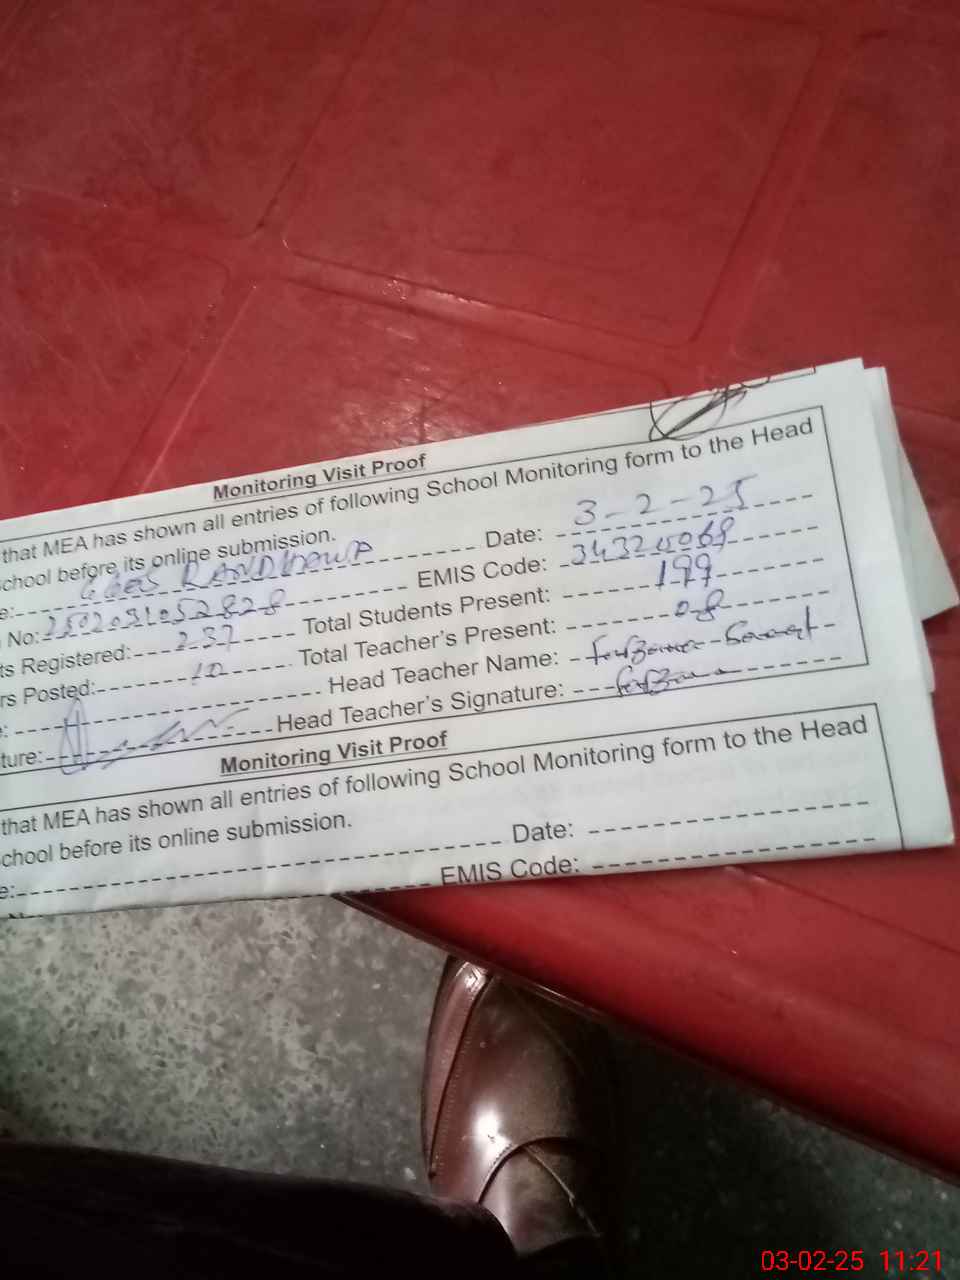 Monitoring Visit Proof
that MEA has shown all entries of following School Monitoring form to the Head
chool before its online submission.
e: GGES RANDHAWA Date: 3-2-25
No: 2502031052828 EMIS Code:
ts Registered: 237 Total Students Present: 199
rs Posted: 10 Total Teacher's Present: 08
: Head Teacher Name:
ture: Head Teacher's Signature:
Monitoring Visit Proof
that MEA has shown all entries of following School Monitoring form to the Head
chool before its online submission.
e: Date:
EMIS Code:
03-02-25 11:21